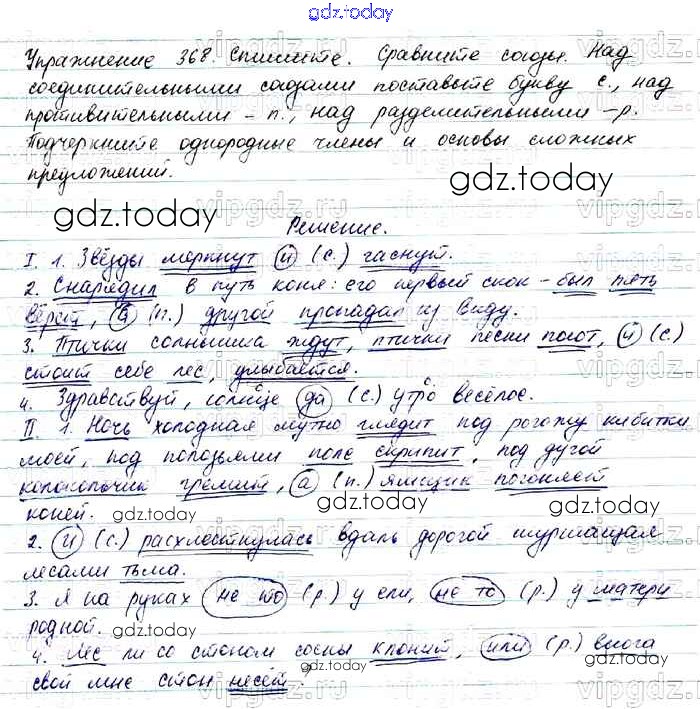 gdz.today
Упражнение 368. Спишите. Сравните союзы. Над
соединительными союзами поставьте букву с., над
противительными – п., над разделительными – р.
Подчеркните однородные члены и основы сложных
предложений.
gdz.today
gdz.today
Решение.
I. 1. Звёзды меркнут и (с.) гаснут.
2. Снарядил в путь коня: его первый скок – был пять
вёрст, а (п.) другой пропадал из виду.
3. Птички солнышка ждут, птички песни поют, и (с)
стоит себе лес, улыбается.
4. Здравствуй, солнце да (с.) утро весёлое.
II 1. Ночь холодная мутно глядит под рогожу кибитки
моей, под полозьями поле скрипит, под дугой
колокольчик гремит, а (п.) ямщик погоняет
коней.
gdz.today
gdz.today
2. и (с.) расхлестнулась вдаль дорогой шуршащая
лесами тьма.
3. Я на руках не то (р.) у ели, не то (р.) у матери
родной.
gdz.today
4. Лес ли со стоном сосны клонит, или (р.) вьюга
свой мне стон несёт?
gdz.today